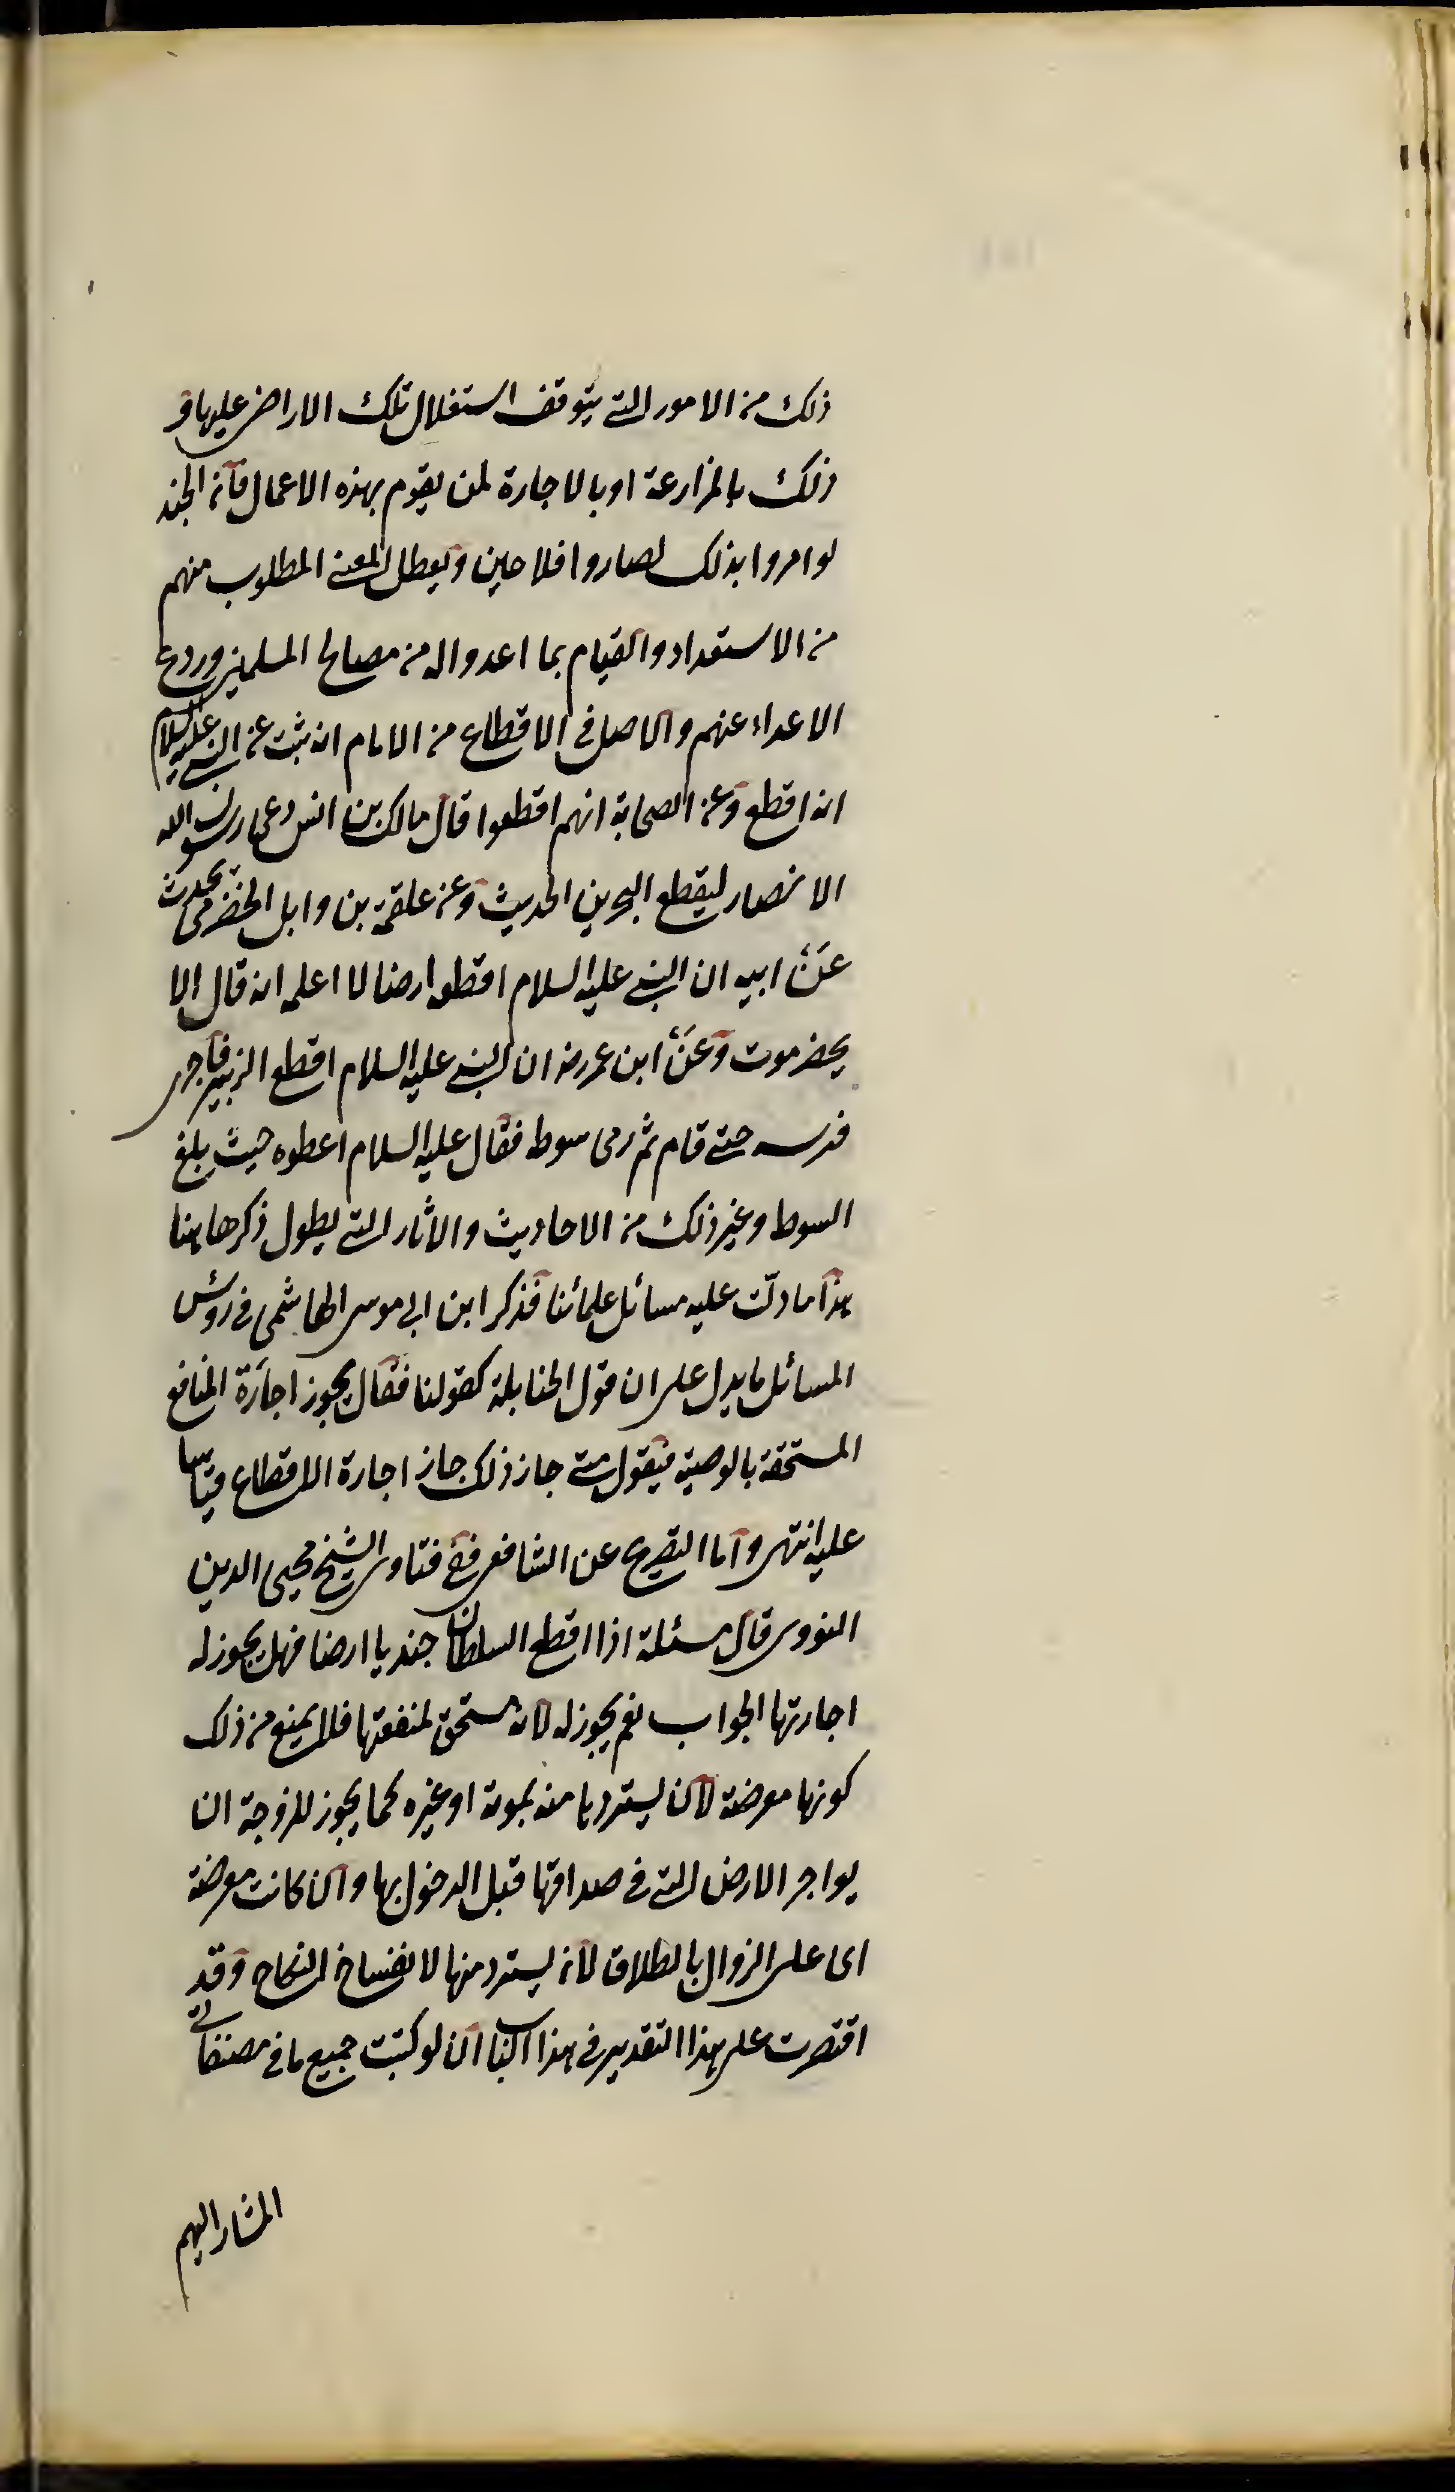 ذلك من الامور التي يتوقف استغلال تلك الاراضي عليها و
ذلك بالمزارعة او بالاجارة لمن يقوم بهذه الاعمال فان الجند
لو امروا بذلك لصاروا فلاحين وتعطل المعنى المطلوب منهم
من الاستعداد والقيام بما اعدوا له من مصالح المسلمين وردع
الاعداء عنهم والاصل في الاقطاع من الامام انه ثبت عن النبي عليه السلام
انه اقطع وعن الصحابة انهم اقطعوا قال مالك بن انس دعى رسول الله
الانصار ليقطع البحرين الحديث وعن علقمة بن وابل الحضرمي يحدث
عن ابيه ان النبي عليه السلام اقطعه ارضا لا اعلمه انه قال الا
بحضرموت وعن ابن عمر رضه ان النبي عليه السلام اقطع الزبير فاجرى
فرسه حتى قام ثم رمى سوطه فقال عليه السلام اعطوه حيث بلغ
السوط وغير ذلك من الاحاديث والاثار التي يطول ذكرها هنا
هذا ما دلّت عليه مسائل علمائنا فذكر ابن ابي موسى الهاشمي في رؤس
المسائل ما يدل على ان قول الحنابلة كقولنا فقال يجوز اجارة المنافع
المستحقة بالوصية فيقول متى جاز ذلك جاز اجارة الاقطاع قياسا
عليه انتهى واما التصريح عن الشافعي ففي فتاوى الشيخ محيى الدين
النووى قال مسئلة اذا اقطع السلطان جنديا ارضا فهل يجوز له
اجارتها الجواب نعم يجوز له لانه مستحق لمنفعتها فلا يمنع من ذلك
كونها معرضة لان يستردها منه بموته او غيره كما يجوز للزوجة ان
يواجر الارض التي في صداقها قبل الدخول بها وان كانت معرضة
اى على الزوال بالطلاق لانه يسترد منها لانفساخ النكاح وقد
اقتصرت على هذا التقدير في هذا الكتاب ان لو كتبت جميع ما في مصنفاتي
المشار اليهم